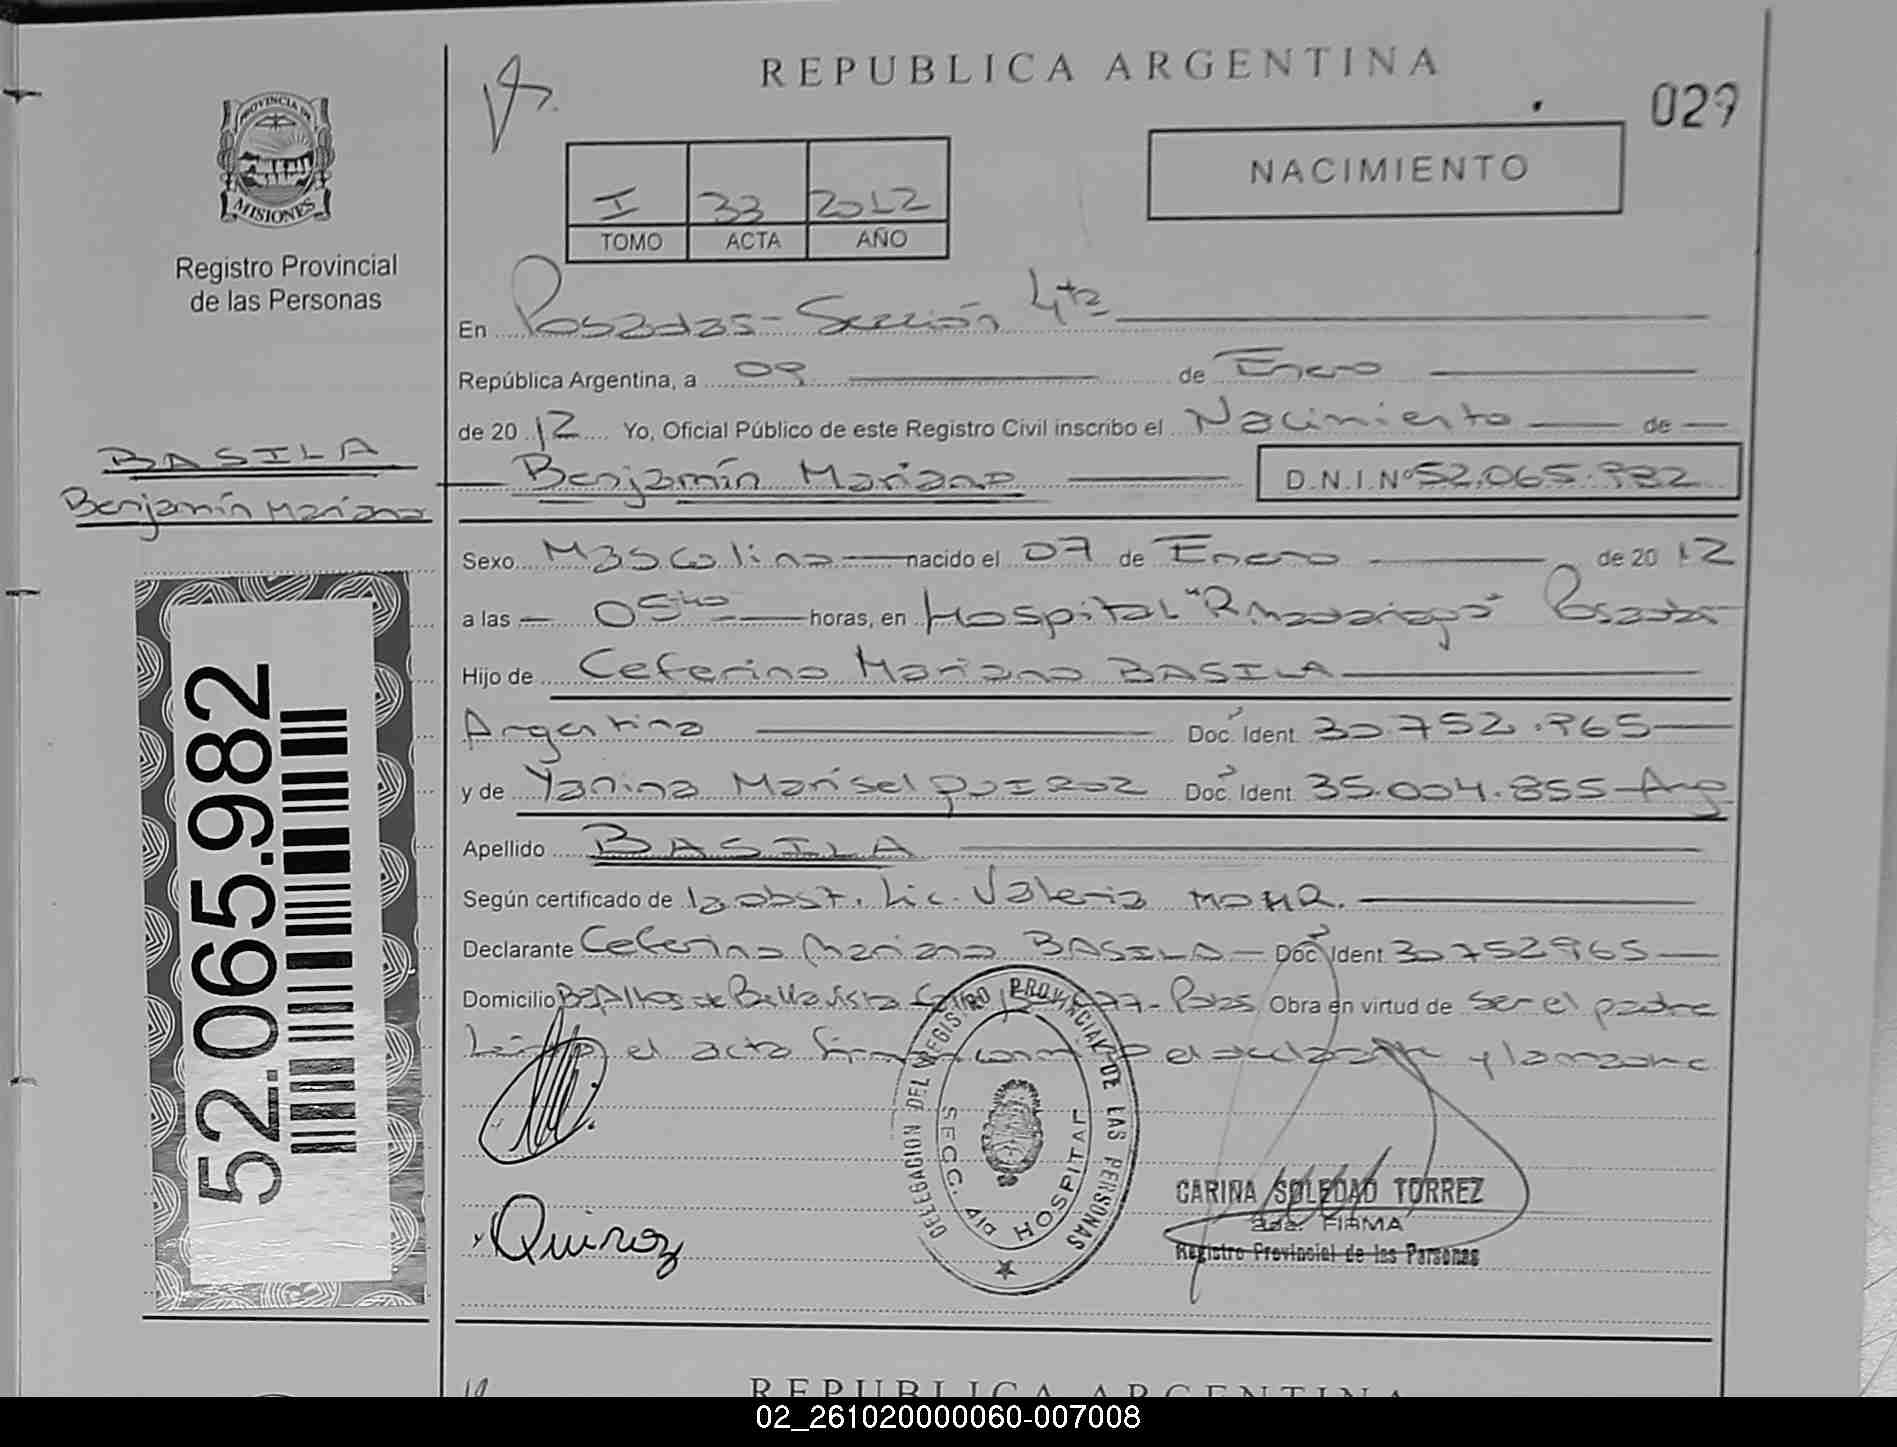 REPUBLICA ARGENTINA
029
PROVINCIA DE
MISIONES
Registro Provincial
de las Personas
NACIMIENTO
I 33 2012
TOMO ACTA AÑO
En Posadas - Sección 4ta
República Argentina, a 09 de Enero
de 2012 Yo, Oficial Público de este Registro Civil inscribo el Nacimiento de
Benjamín Mariano D.N.I.Nº 52.065.982
BASILA
Benjamín Mariano
Sexo Masculino nacido el 07 de Enero de 2012
a las 05 horas, en Hospital "R Madariaga" Posadas
Hijo de Ceferino Mariano BASILA
Argentina Doc. Ident. 30.752.965
y de Yanina Marisel QUIROZ Doc. Ident. 35.004.855 - Arg
Apellido BASILA
Según certificado de la obst. Lic. Valeria MOHR.
Declarante Ceferino Mariano BASILA - Doc. Ident. 30752965
Domicilio Bella vista Obra en virtud de ser el padre
el acta el declarante y la madre
52.065.982
DELEGACION DEL REGISTRO PROVINCIAL DE LAS PERSONAS
SECC. 4ta HOSPITAL
CARINA SOLEDAD TORREZ
FIRMA
Registro Provincial de las Personas
Quiroz
REPUBLICA ARGENTINA
02_261020000060-007008